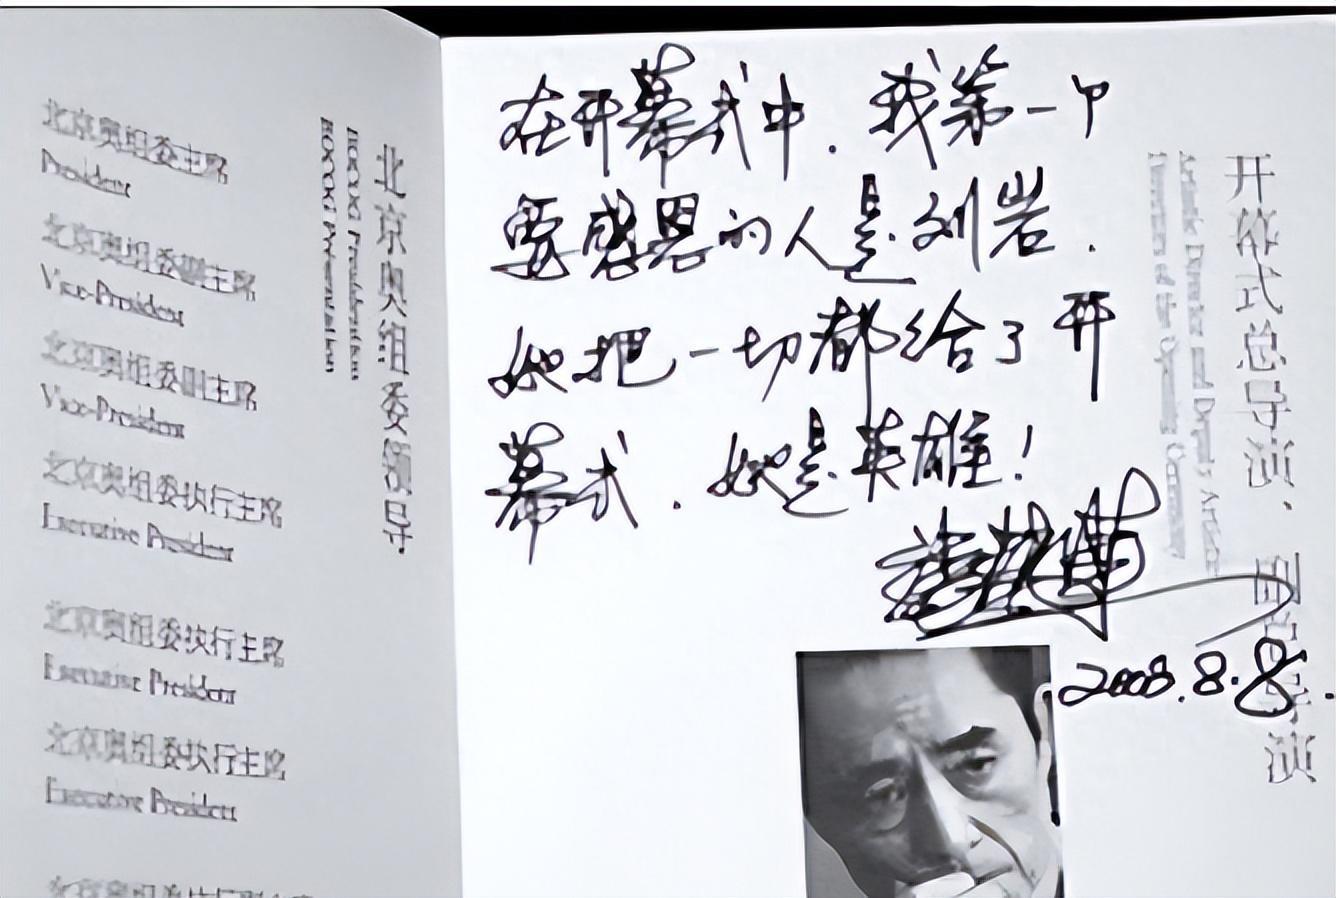 北京奥组委主席
President
北京奥组委副主席
Vice-President
北京奥组委副主席
Vice-President
北京奥组委执行主席
Executive President
北京奥组委执行主席
Executive President
北京奥组委执行主席
Executive President
北京奥组委领导
在开幕式中.我第一个
要感恩的人是刘岩.
她把一切都给了开
幕式.她是英雄!
张艺谋
2008.8.8.
开幕式总导演、副总导演